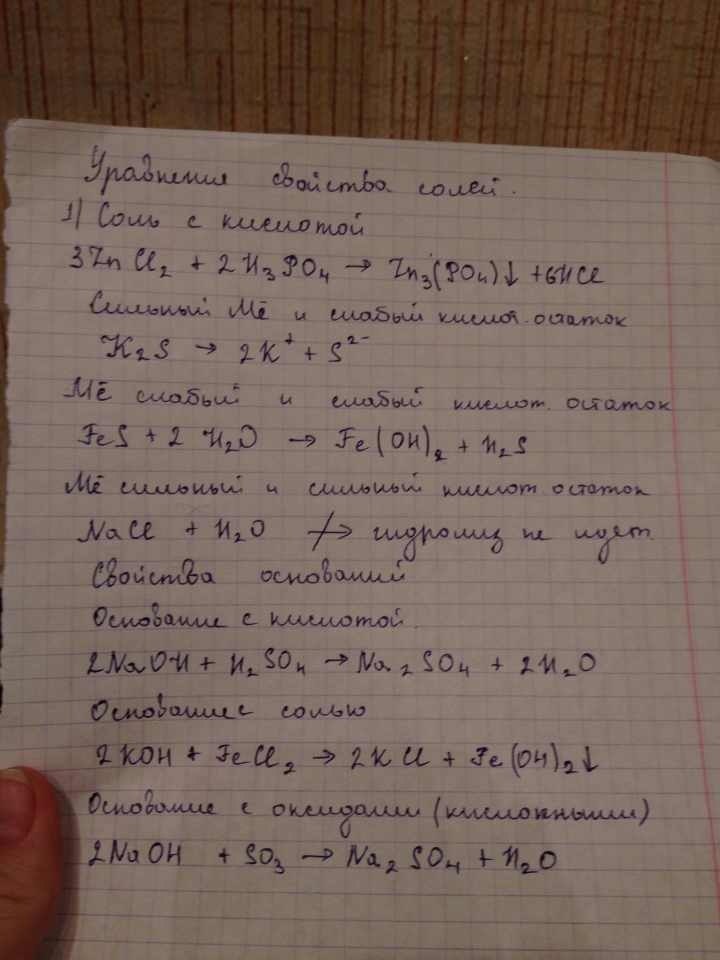 Уравнения свойства солей.
1) Соль с кислотой
3ZnCl₂ + 2H₃PO₄ → Zn₃(PO₄)↓ + 6HCl
Сильный Ме и слабый кислот. остаток
K₂S → 2K⁺ + S²⁻
Ме слабый и слабый кислот. остаток
FeS + 2 H₂O → Fe(OH)₂ + H₂S
Ме сильный и сильный кислот остаток
NaCl + H₂O ↛ гидролиз не идет.
Свойства оснований
Основание с кислотой.
2NaOH + H₂SO₄ → Na₂SO₄ + 2H₂O
Основание с солью
2KOH + FeCl₂ → 2KCl + Fe(OH)₂↓
Основание с оксидами (кислотными)
2NaOH + SO₃ → Na₂SO₄ + H₂O